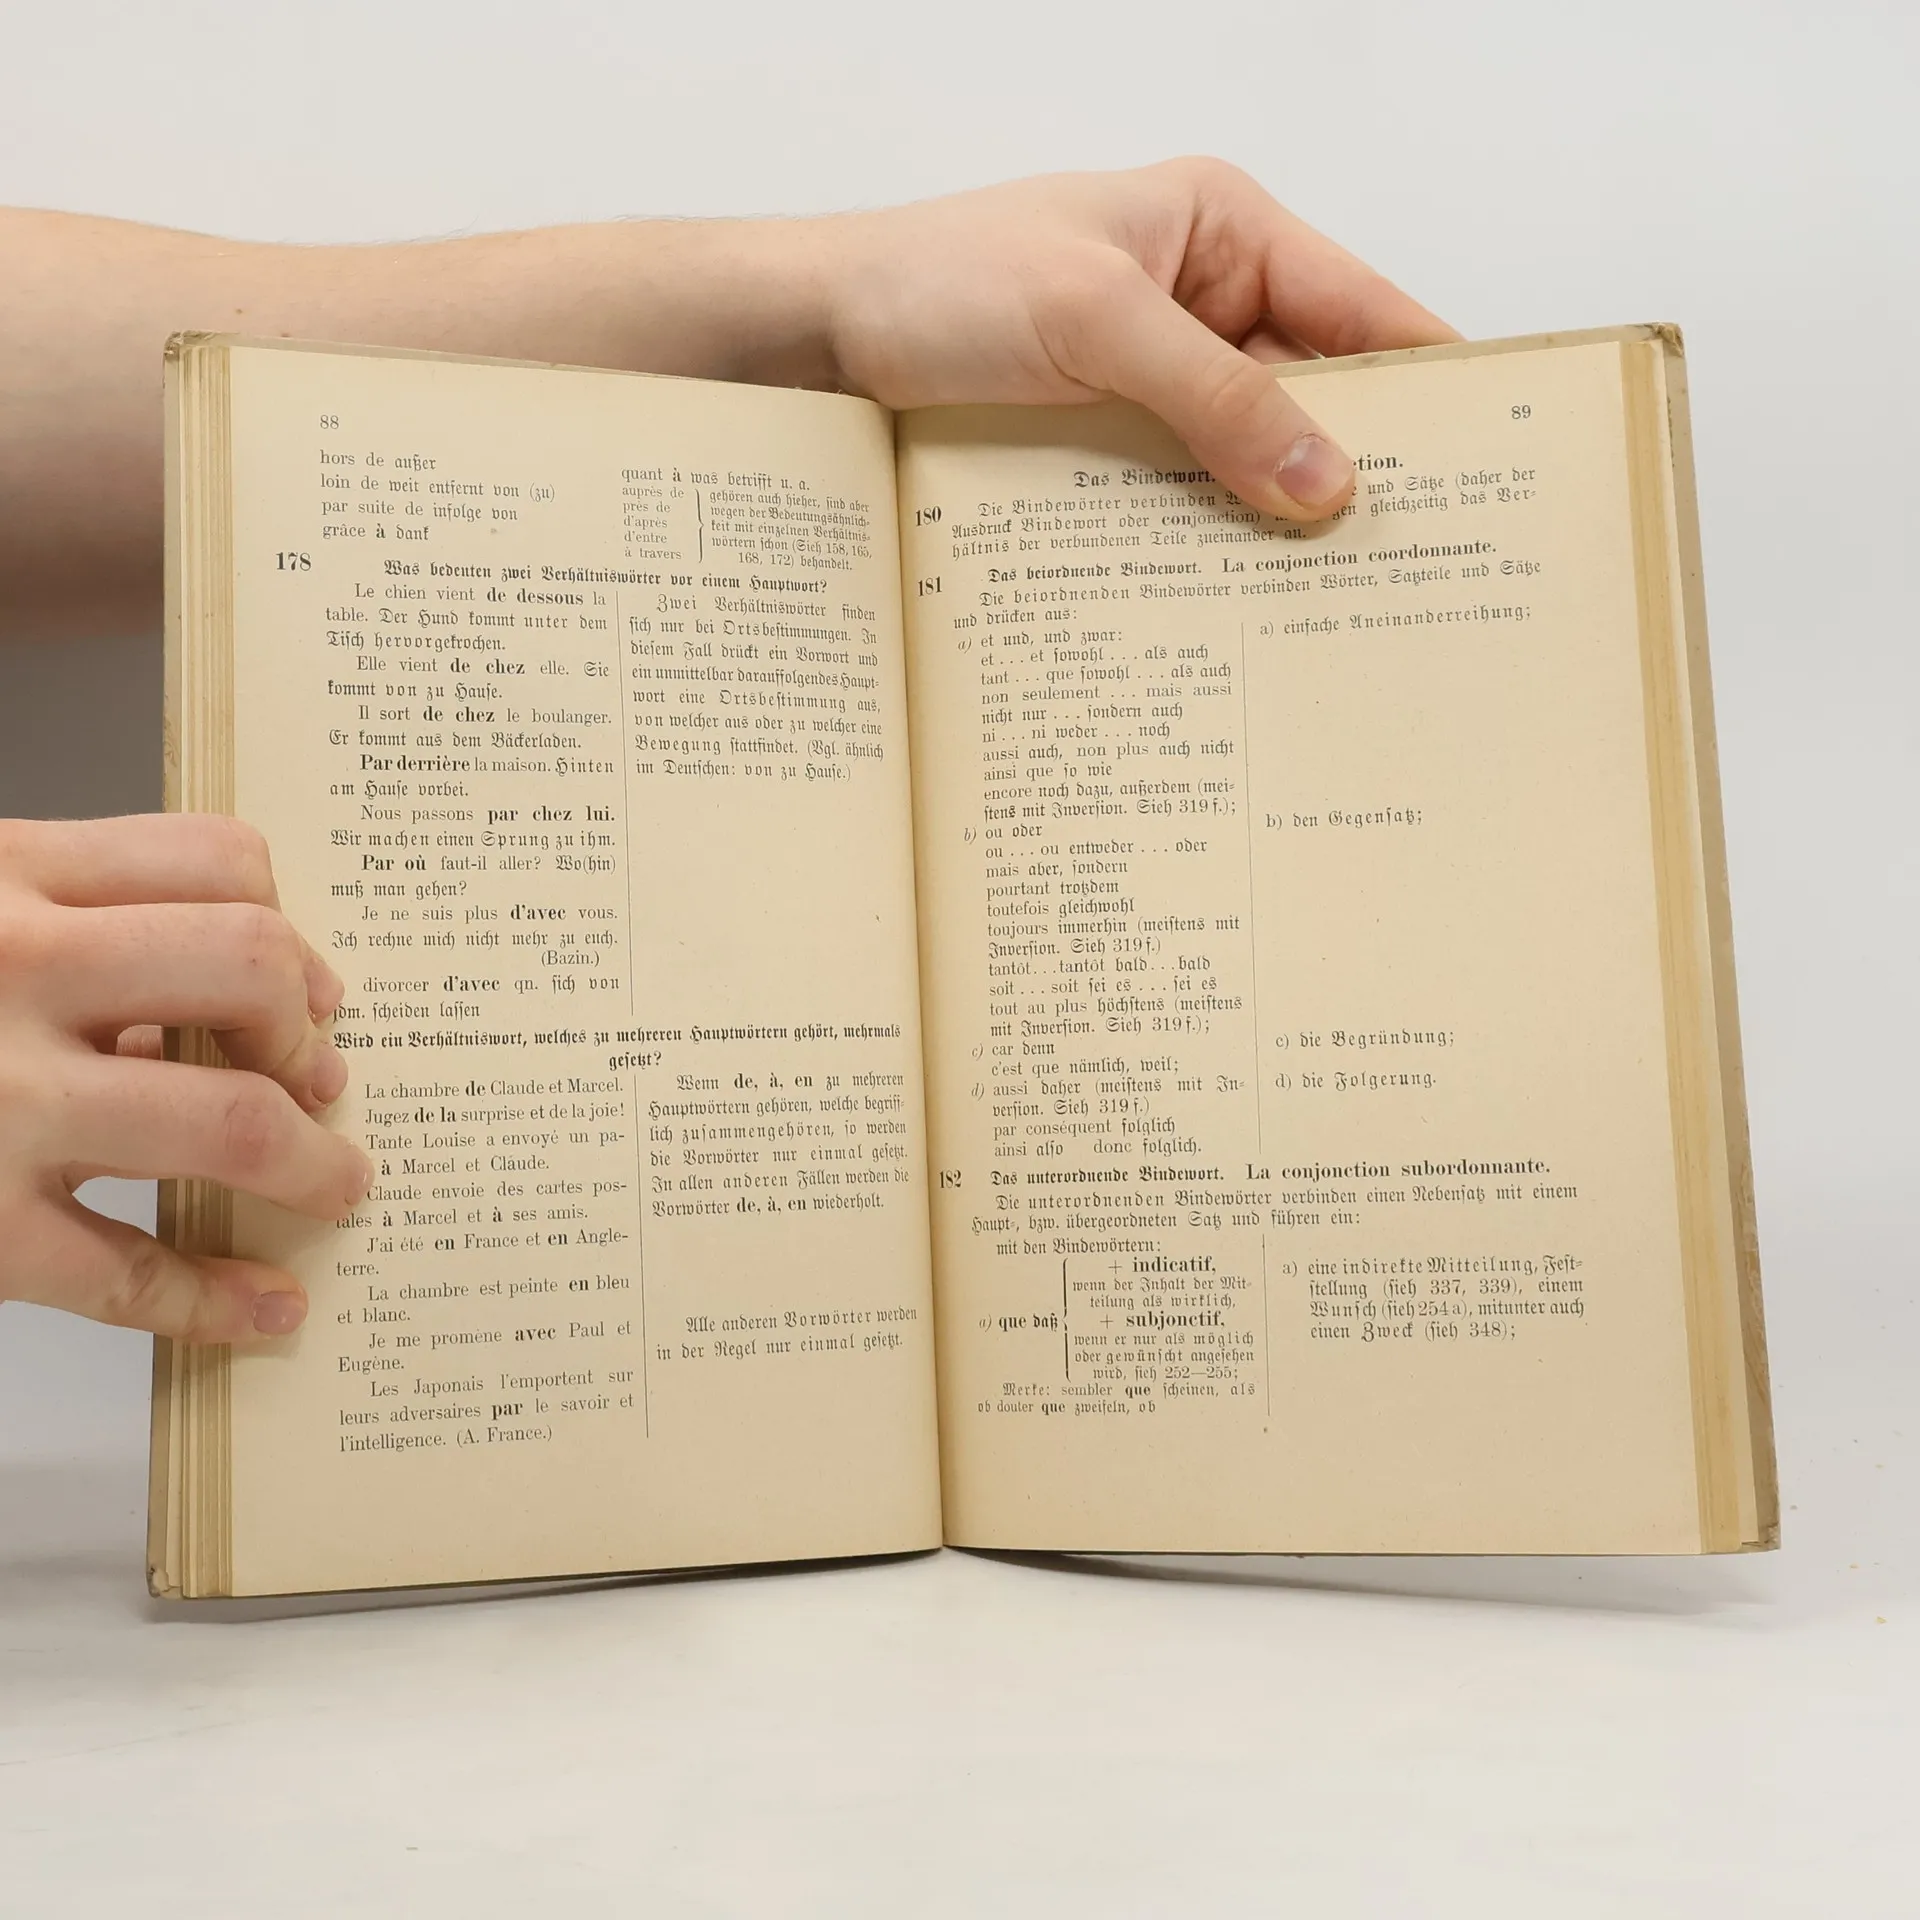 88
hors de außer
loin de weit entfernt von (zu)
par suite de infolge von
grâce à dank
quant à was betrifft u. a.
auprès de
près de
d'après
d'entre
à travers
gehören auch hieher, sind aber
wegen der Bedeutungsähnlich-
keit mit einzelnen Verhältnis-
wörtern schon (Sieh 158, 165,
168, 172) behandelt.
178 Was bedenten zwei Verhältniswörter vor einem Hauptwort?
Le chien vient de dessous la
table. Der Hund kommt unter dem
Tisch hervorgekrochen.
Elle vient de chez elle. Sie
kommt von zu Hause.
Il sort de chez le boulanger.
Er kommt aus dem Bäckerladen.
Par derrière la maison. Hinten
am Hause vorbei.
Nous passons par chez lui.
Wir machen einen Sprung zu ihm.
Par où faut-il aller? Wo(hin)
muß man gehen?
Je ne suis plus d'avec vous.
Ich rechne mich nicht mehr zu euch.
(Bazin.)
divorcer d'avec qn. sich von
jdm. scheiden lassen
Zwei Verhältniswörter finden
sich nur bei Ortsbestimmungen. In
diesem Fall drückt ein Vorwort und
ein unmittelbar darauffolgendes Haupt-
wort eine Ortsbestimmung aus,
von welcher aus oder zu welcher eine
Bewegung stattfindet. (Vgl. ähnlich
im Deutschen: von zu Hause.)
Wird ein Verhältniswort, welches zu mehreren Hauptwörtern gehört, mehrmals
gesetzt?
La chambre de Claude et Marcel.
Jugez de la surprise et de la joie!
Tante Louise a envoyé un pa-
à Marcel et Claude.
Claude envoie des cartes pos-
tales à Marcel et à ses amis.
J'ai été en France et en Angle-
terre.
La chambre est peinte en bleu
et blanc.
Je me promène avec Paul et
Eugène.
Les Japonais l'emportent sur
leurs adversaires par le savoir et
l'intelligence. (A. France.)
Wenn de, à, en zu mehreren
Hauptwörtern gehören, welche begriff-
lich zusammengehören, so werden
die Vorwörter nur einmal gesetzt.
In allen anderen Fällen werden die
Vorwörter de, à, en wiederholt.
Alle anderen Vorwörter werden
in der Regel nur einmal gesetzt.
89
Das Bindewort. ction.
180 Die Bindewörter verbinden und Sätze (daher der
Ausdruck Bindewort oder conjonction) gleichzeitig das Ver-
hältnis der verbundenen Teile zueinander an.
181 Das beiordnende Bindewort. La conjonction coordonnante.
Die beiordnenden Bindewörter verbinden Wörter, Satzteile und Sätze
und drücken aus:
a) et und, und zwar:
et . . . et sowohl . . . als auch
tant . . . que sowohl . . . als auch
non seulement . . . mais aussi
nicht nur . . . sondern auch
ni . . . ni weder . . . noch
aussi auch, non plus auch nicht
ainsi que so wie
encore noch dazu, außerdem (mei-
stens mit Inversion. Sieh 319 f.);
b) ou oder
ou . . . ou entweder . . . oder
mais aber, sondern
pourtant trotzdem
toutefois gleichwohl
toujours immerhin (meistens mit
Inversion. Sieh 319 f.)
tantôt . . . tantôt bald . . . bald
soit . . . soit sei es . . . sei es
tout au plus höchstens (meistens
mit Inversion. Sieh 319 f.);
c) car denn
c'est que nämlich, weil;
d) aussi daher (meistens mit In-
version. Sieh 319 f.)
par conséquent folglich
ainsi also donc folglich.
a) einfache Aneinanderreihung;
b) den Gegensatz;
c) die Begründung;
d) die Folgerung.
182 Das unterordnende Bindewort. La conjonction subordonnante.
Die unterordnenden Bindewörter verbinden einen Nebensatz mit einem
Haupt-, bzw. übergeordneten Satz und führen ein:
mit den Bindewörtern:
+ indicatif,
wenn der Inhalt der Mit-
teilung als wirklich,
a) que daß + subjonctif,
wenn er nur als möglich
oder gewünscht angesehen
wird, sieh 252—255;
Merke: sembler que scheinen, als
ob douter que zweifeln, ob
a) eine indirekte Mitteilung, Fest-
stellung (sieh 337, 339), einem
Wunsch (sieh 254 a), mitunter auch
einen Zweck (sieh 348);